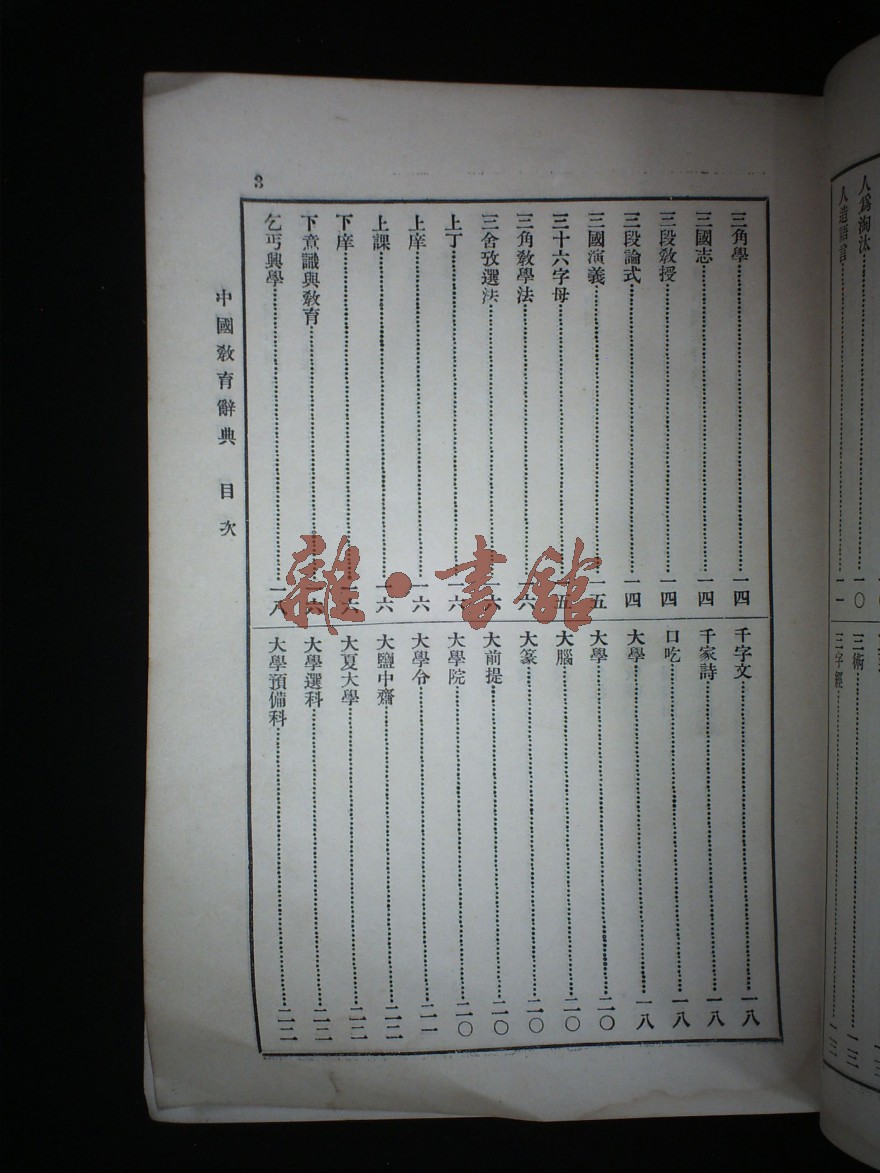 人爲淘汰……一〇
人造語言……一一
三術……一三
三字經……一三
三角學……一四
三國志……一四
三段教授……一四
三段論式……一四
三國演義……一五
三十六字母……一五
三角教學法……一六
三舍攷選法……一六
上丁……一六
上庠……一六
上課……一六
下庠……一六
下意識與教育……一六
乞丐興學……一八
千字文……一八
千家詩……一八
口吃……一八
大學……一八
大學……二〇
大腦……二〇
大篆……二〇
大前提……二〇
大學院……二〇
大學令……二一
大鹽中齋……二二
大夏大學……二二
大學選科……二二
大學預備科……二二
中國教育辭典 目次
3
雜·書館